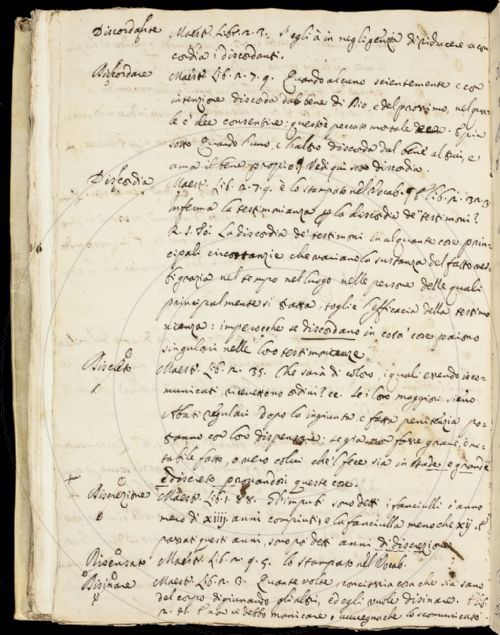 Discordante Maestr. Libr. 2. 3. S'egli à in negligenza di riducere a con
cordia i discordanti.
Discordare Maestr. Lib. 2. 7. 9. Quando alcuno scientemente e con
intenzione discorda dal bene di Dio, e del prossimo, nel qua
le e' dee consentire; questo è peccato mortale
sotto Quando l'uno, e l'altro discorda dal bene altrui, e
ama il bene proprio. Vedi più sotto discordia
Discordia Maestr. Lib. 2. 7. 9. è lo stampato nel Vocab.
inferma la testimonianza la discordia de' testimoni?
La discordia de' testimoni in alquante cose prin
cipali circostanzie che variano la sustanza del fatto
nel tempo nel luogo nelle persone delle quali
principalmente si tratta, toglie l'efficacia della testimo
nianza: imperocchè se discordano in cota' cose paiono
singulari nelle loro testimonianze
Discreto Maestr. Lib. 2. 35. Che sarà di coloro, i quali essendo iscor
municati, ricevettono ordini? ec. Se i loro maggiori sieno
Abati regulari dopo la ingiunta e fatta penitenzia po
tranno con loro dispensare, se già non fosse grave, e no
tabile fatto, o vero colui che 'l fece sia in etade, e grande
e discreto provandosi queste cose.
Discrezione Maestr. Lib. 1. 88. Gl'imputi sono detti i fanciulli c'anno
meno di xiiij. anni compiuti; e la fanciulla meno che xij.
passati questi anni, sono detti anni di discrezione
Disensato Maestr. Lib. 2. 9. 5. lo stampato nel Vocab.
Disinare Maestr. Lib. 2. 3. Quante volte comincia con che sia sano
del corpo digiunando gli altri, ed egli vuole disinare.
debbo manicare, avvegnachè lo scomunicato